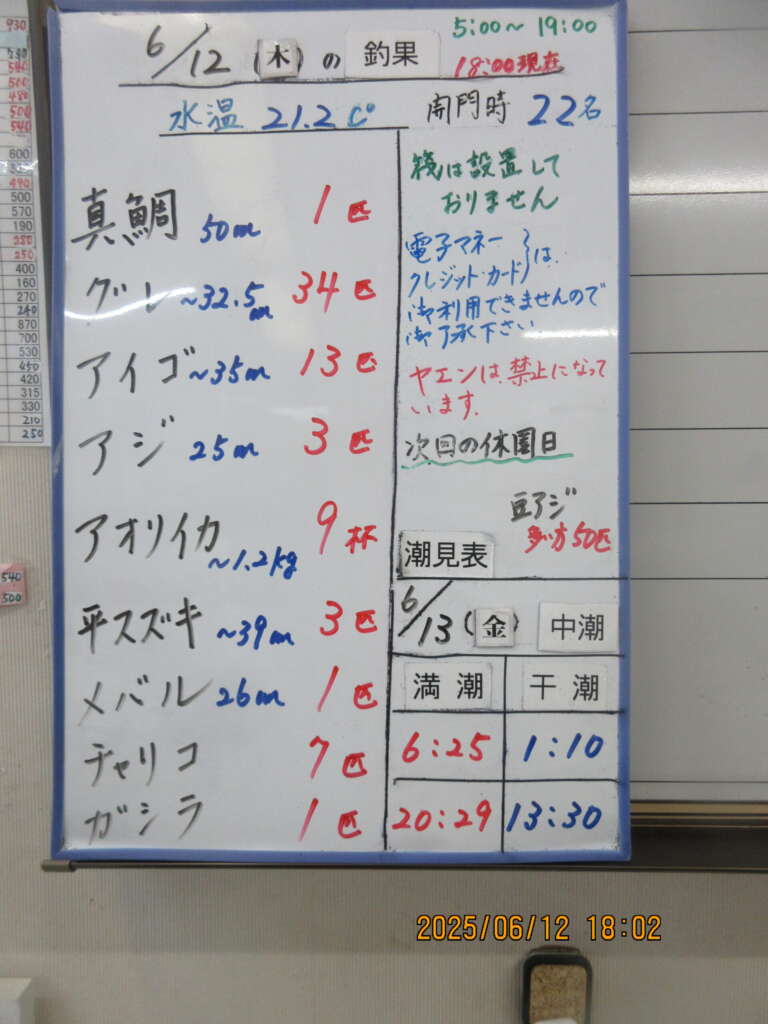 6/12(木)の 釣果
5:00~19:00
18:00現在
水温 21.2℃
開門時 22名
真鯛 50cm 1匹
グレ ~32.5cm 34匹
アイゴ ~35cm 13匹
アジ 25cm 3匹
アオリイカ ~1.2kg 9杯
平スズキ ~39cm 3匹
メバル 26cm 1匹
チャリコ 7匹
ガシラ 1匹
筏は設置して
おりません
電子マネー
クレジット・カード}は
御利用できませんので
御了承下さい
ヤエンは禁止になって
います.
次回の休園日
豆アジ
多い方50匹
潮見表
6/13(金) 中潮
満潮 干潮
6:25 1:10
20:29 13:30
930
540
500
480
500
540
600
490
500
570
190
250
250
400
160
270
240
870
700
530
450
420
315
330
210
250
540
500
2025/06/12 18:02